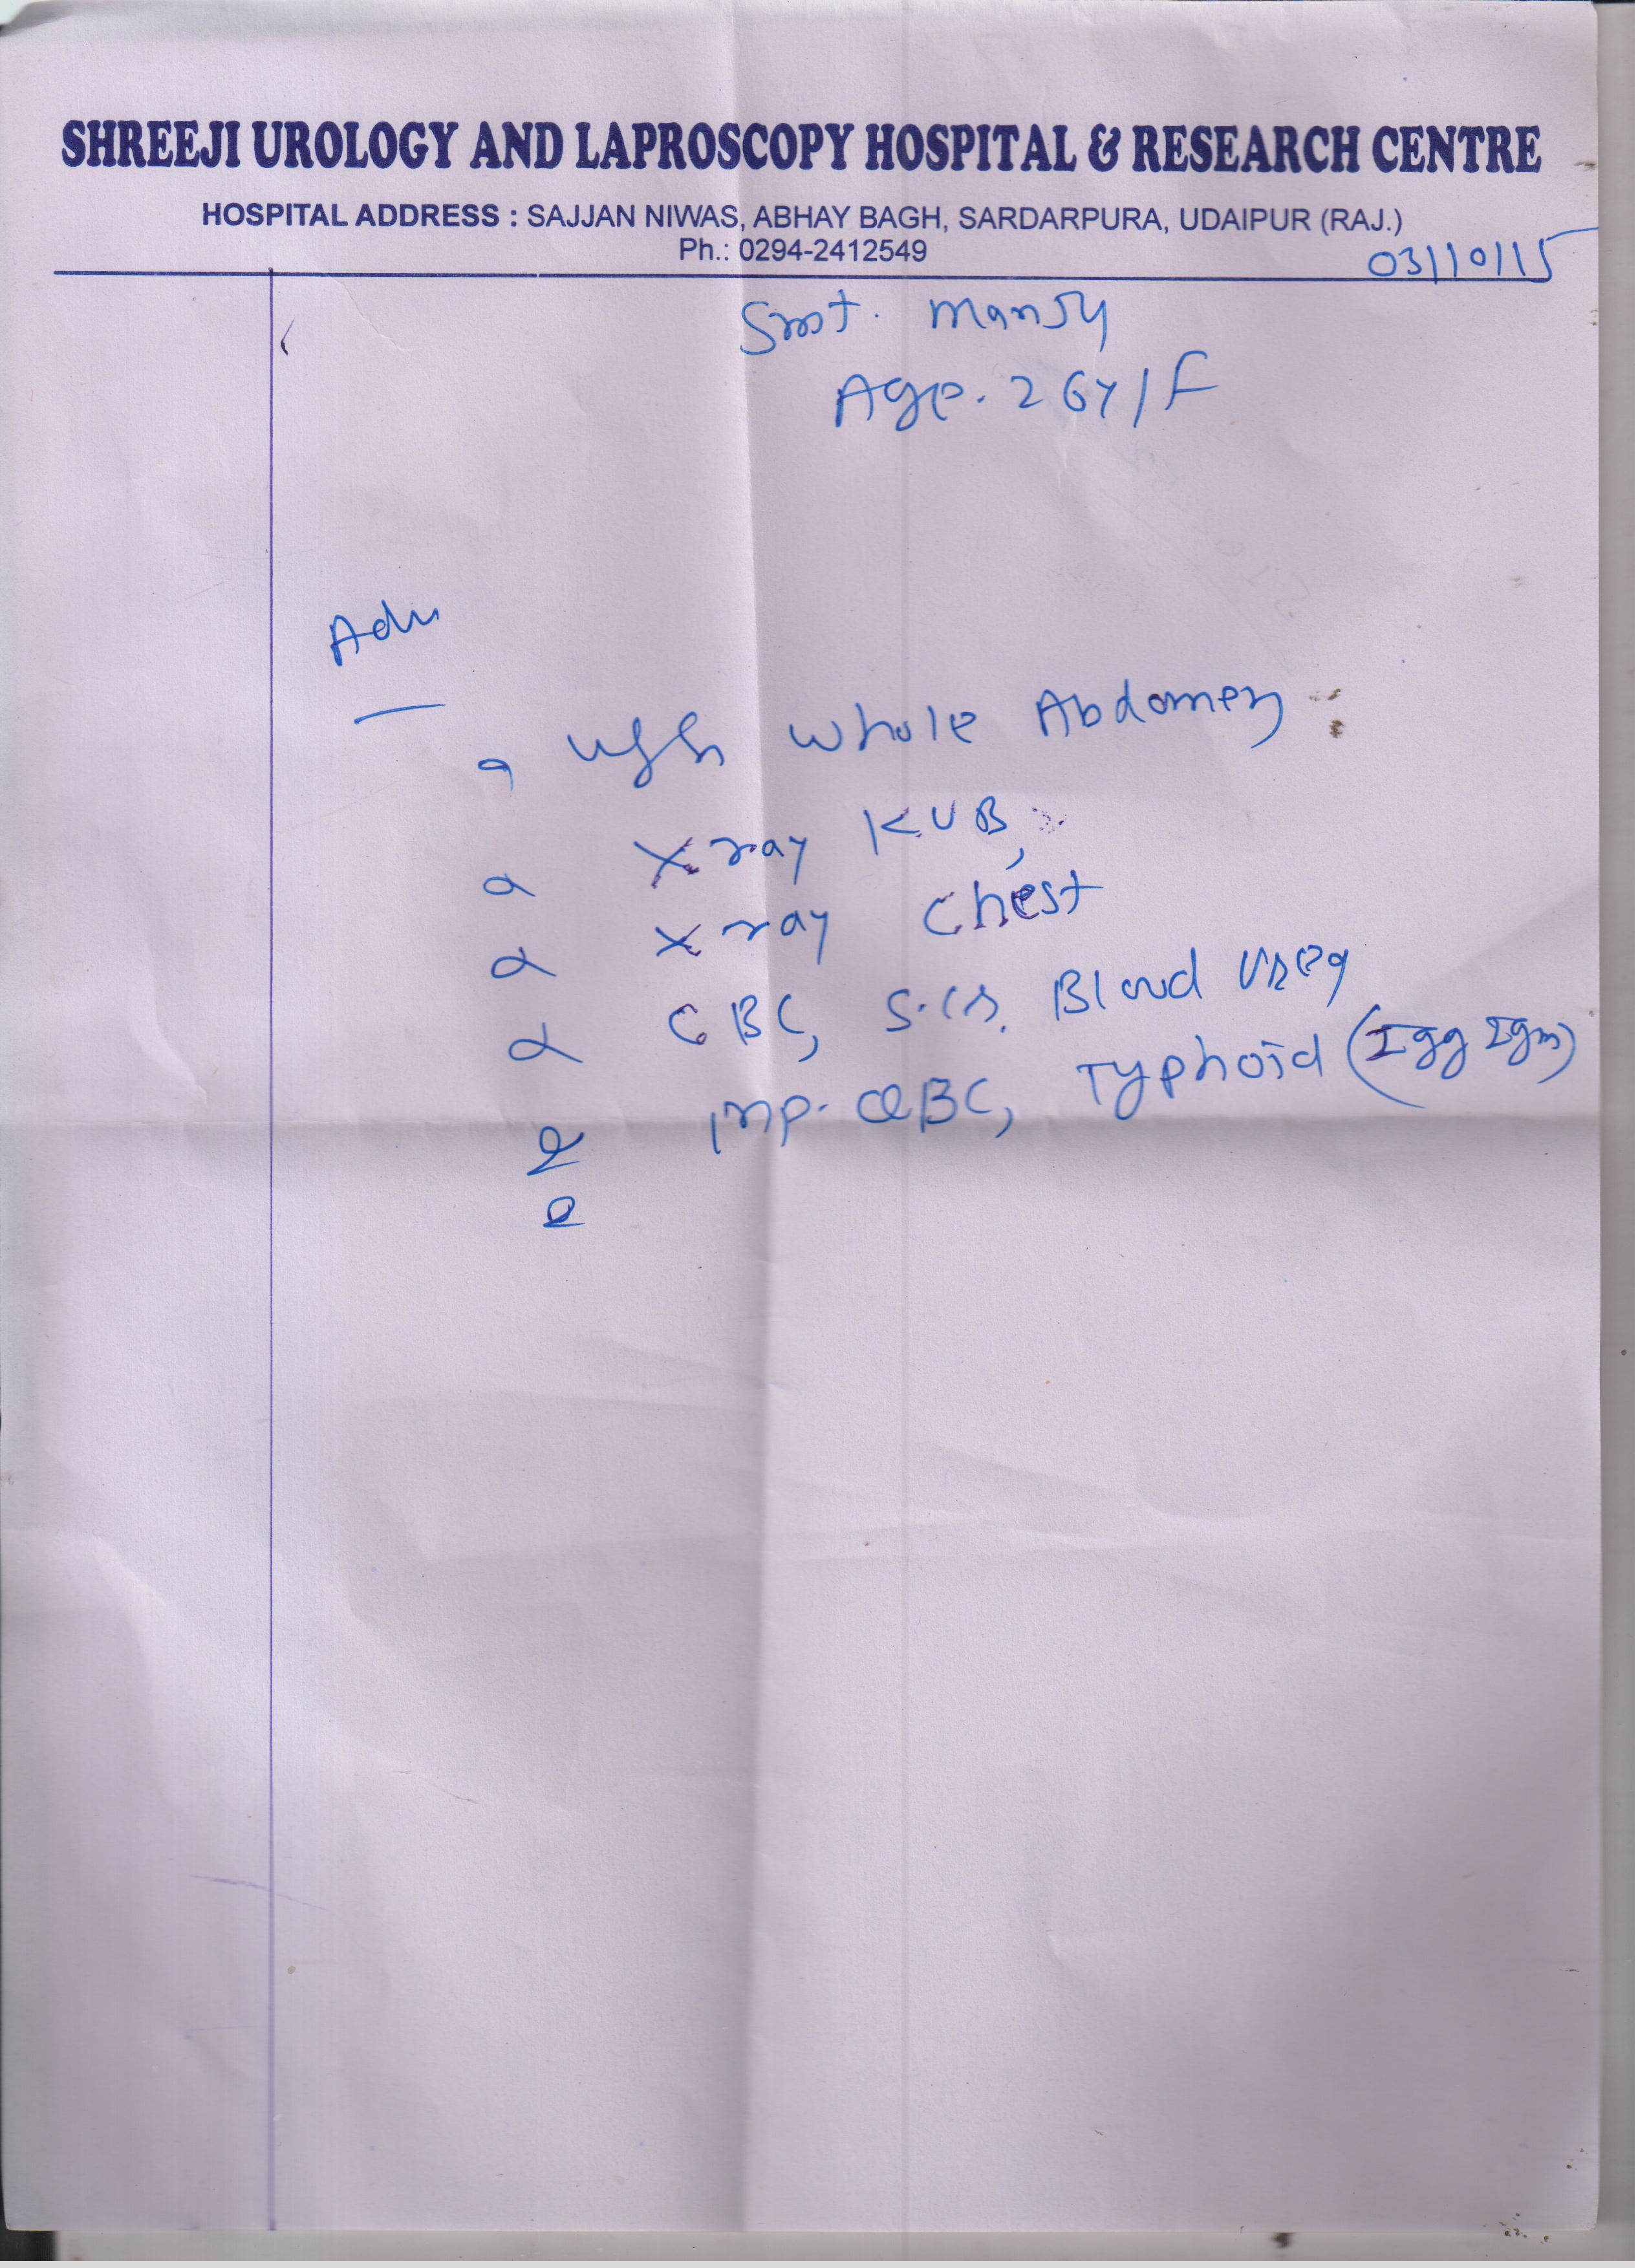 SHREEJI UROLOGY AND LAPROSCOPY HOSPITAL & RESEARCH CENTRE
HOSPITAL ADDRESS : SAJJAN NIWAS, ABHAY BAGH, SARDARPURA, UDAIPUR (RAJ.)
Ph.: 0294-2412549
03/10/15
Smt. Mansy
Age. 26y/F
Adv
USG whole Abdomen
X ray KUB,
X ray Chest
CBC, S.Cr. Blood Urea
MP. QBC, Typhoid (Igg Igm)